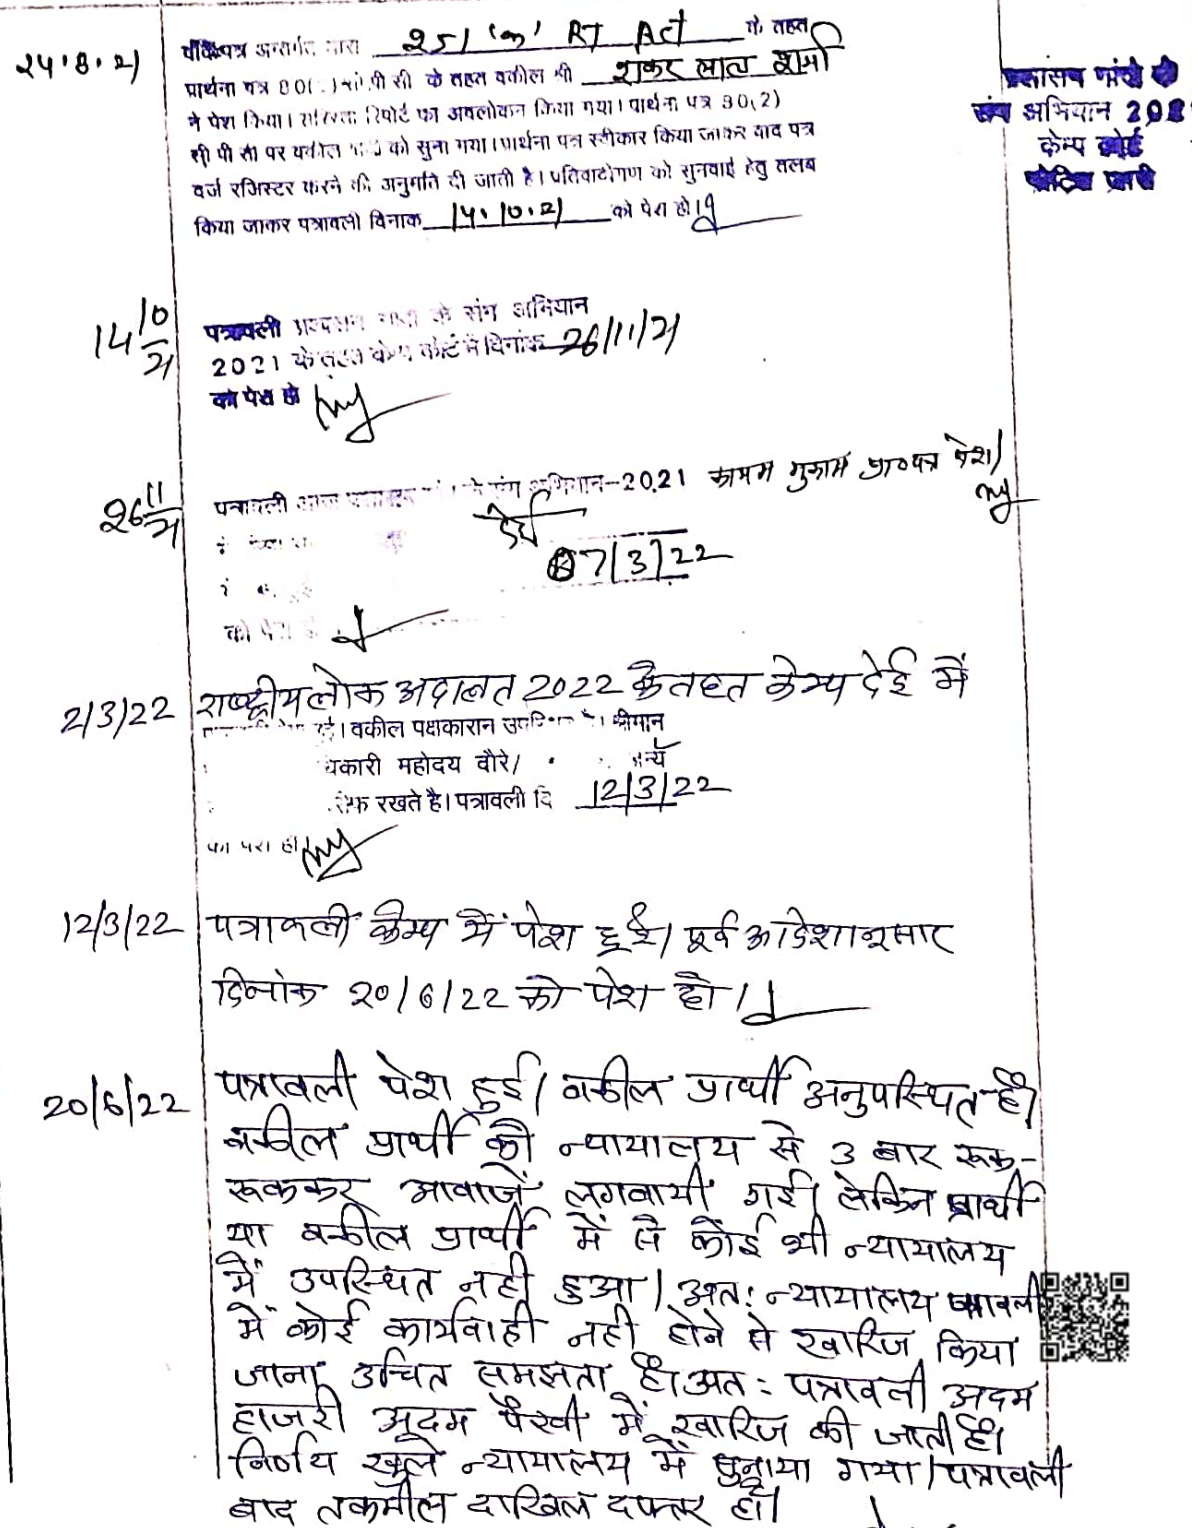 24.8.21
अन्तर्गत धारा 251 'क' RT Act के तहत
प्रार्थना पत्र 80( ) सी पी सी के तहत वकील श्री शंकर लाल शर्मा
ने पेश किया। रिपोर्ट का अवलोकन किया गया। प्रार्थना पत्र 80(2)
सी पी सी पर वकील को सुना गया। प्रार्थना पत्र स्वीकार किया जाकर वाद पत्र
दर्ज रजिस्टर करने की अनुमति दी जाती है। प्रतिवादीगण को सुनवाई हेतु तलब
किया जाकर पत्रावली दिनांक 14.10.21 को पेश हो।
संग अभियान 202
केम्प कोर्ट
14/10/21
पत्रावली के संग अभियान
2021 के तहत केम्प कोर्ट में दिनांक 26/11/21
को पेश हो
26/11/21
पत्रावली आज संग अभियान-2021 कायम मुकाम प्रा०पत्र पेश।
देई
07/3/22
को पेश
2/3/22
राष्ट्रीय लोक अदालत 2022 के तहत केम्प देई में
हुई। वकील पक्षकारान उपस्थित है। श्रीमान
धिकारी महोदय दौरे/ अन्य
रखते है। पत्रावली दि 12/3/22
को पेश हो
12/3/22
पत्रावली केम्प में पेश हुई। पूर्व आदेशानुसार
दिनांक 20/6/22 को पेश हो।
20/6/22
पत्रावली पेश हुई। वकील प्रार्थी अनुपस्थित है।
वकील प्रार्थी को न्यायालय से 3 बार रूक-
रूककर आवाजें लगवायी गई। लेकिन प्रार्थी
या वकील प्रार्थी में से कोई भी न्यायालय
में उपस्थित नही हुआ। अत: न्यायालय पत्रावली
में कोई कार्यवाही नही होने से खारिज किया
जाना उचित समझता है। अत: पत्रावली अदम
हाजरी अदम पैरवी में खारिज की जाती है।
निर्णय खुले न्यायालय में सुनाया गया। पत्रावली
बाद तकमील दाखिल दफ्तर हो।